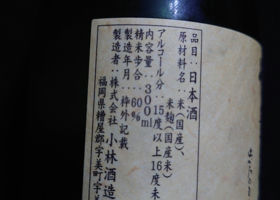 品目:日本酒
原材料名:米(国産)、
米麹(国産米)
アルコール分:15度以上16度未
内容量:300ml
精米歩合:60%
製造年月:枠外記載
製造者:株式会社小林酒造
福岡県糟屋郡宇美町宇